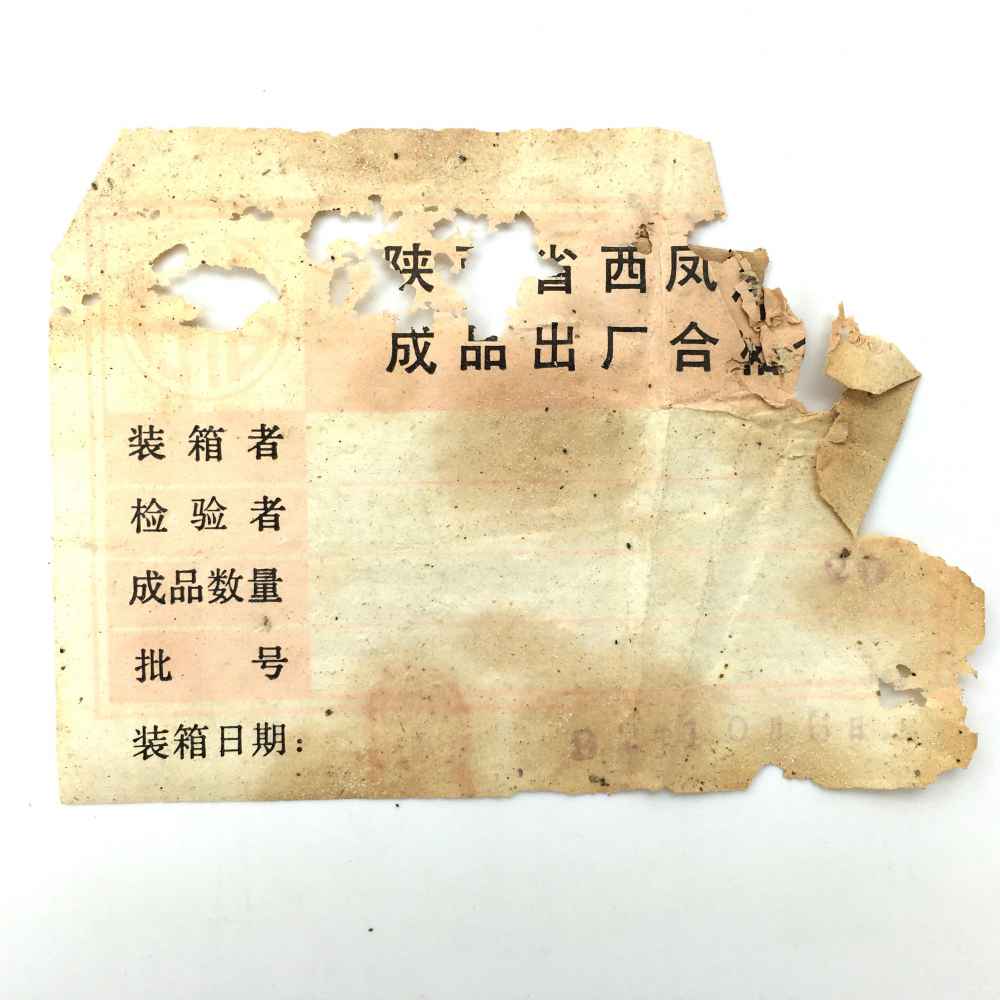 陕西省西凤
成品出厂合格
装箱者
检验者
成品数量
批号
装箱日期: